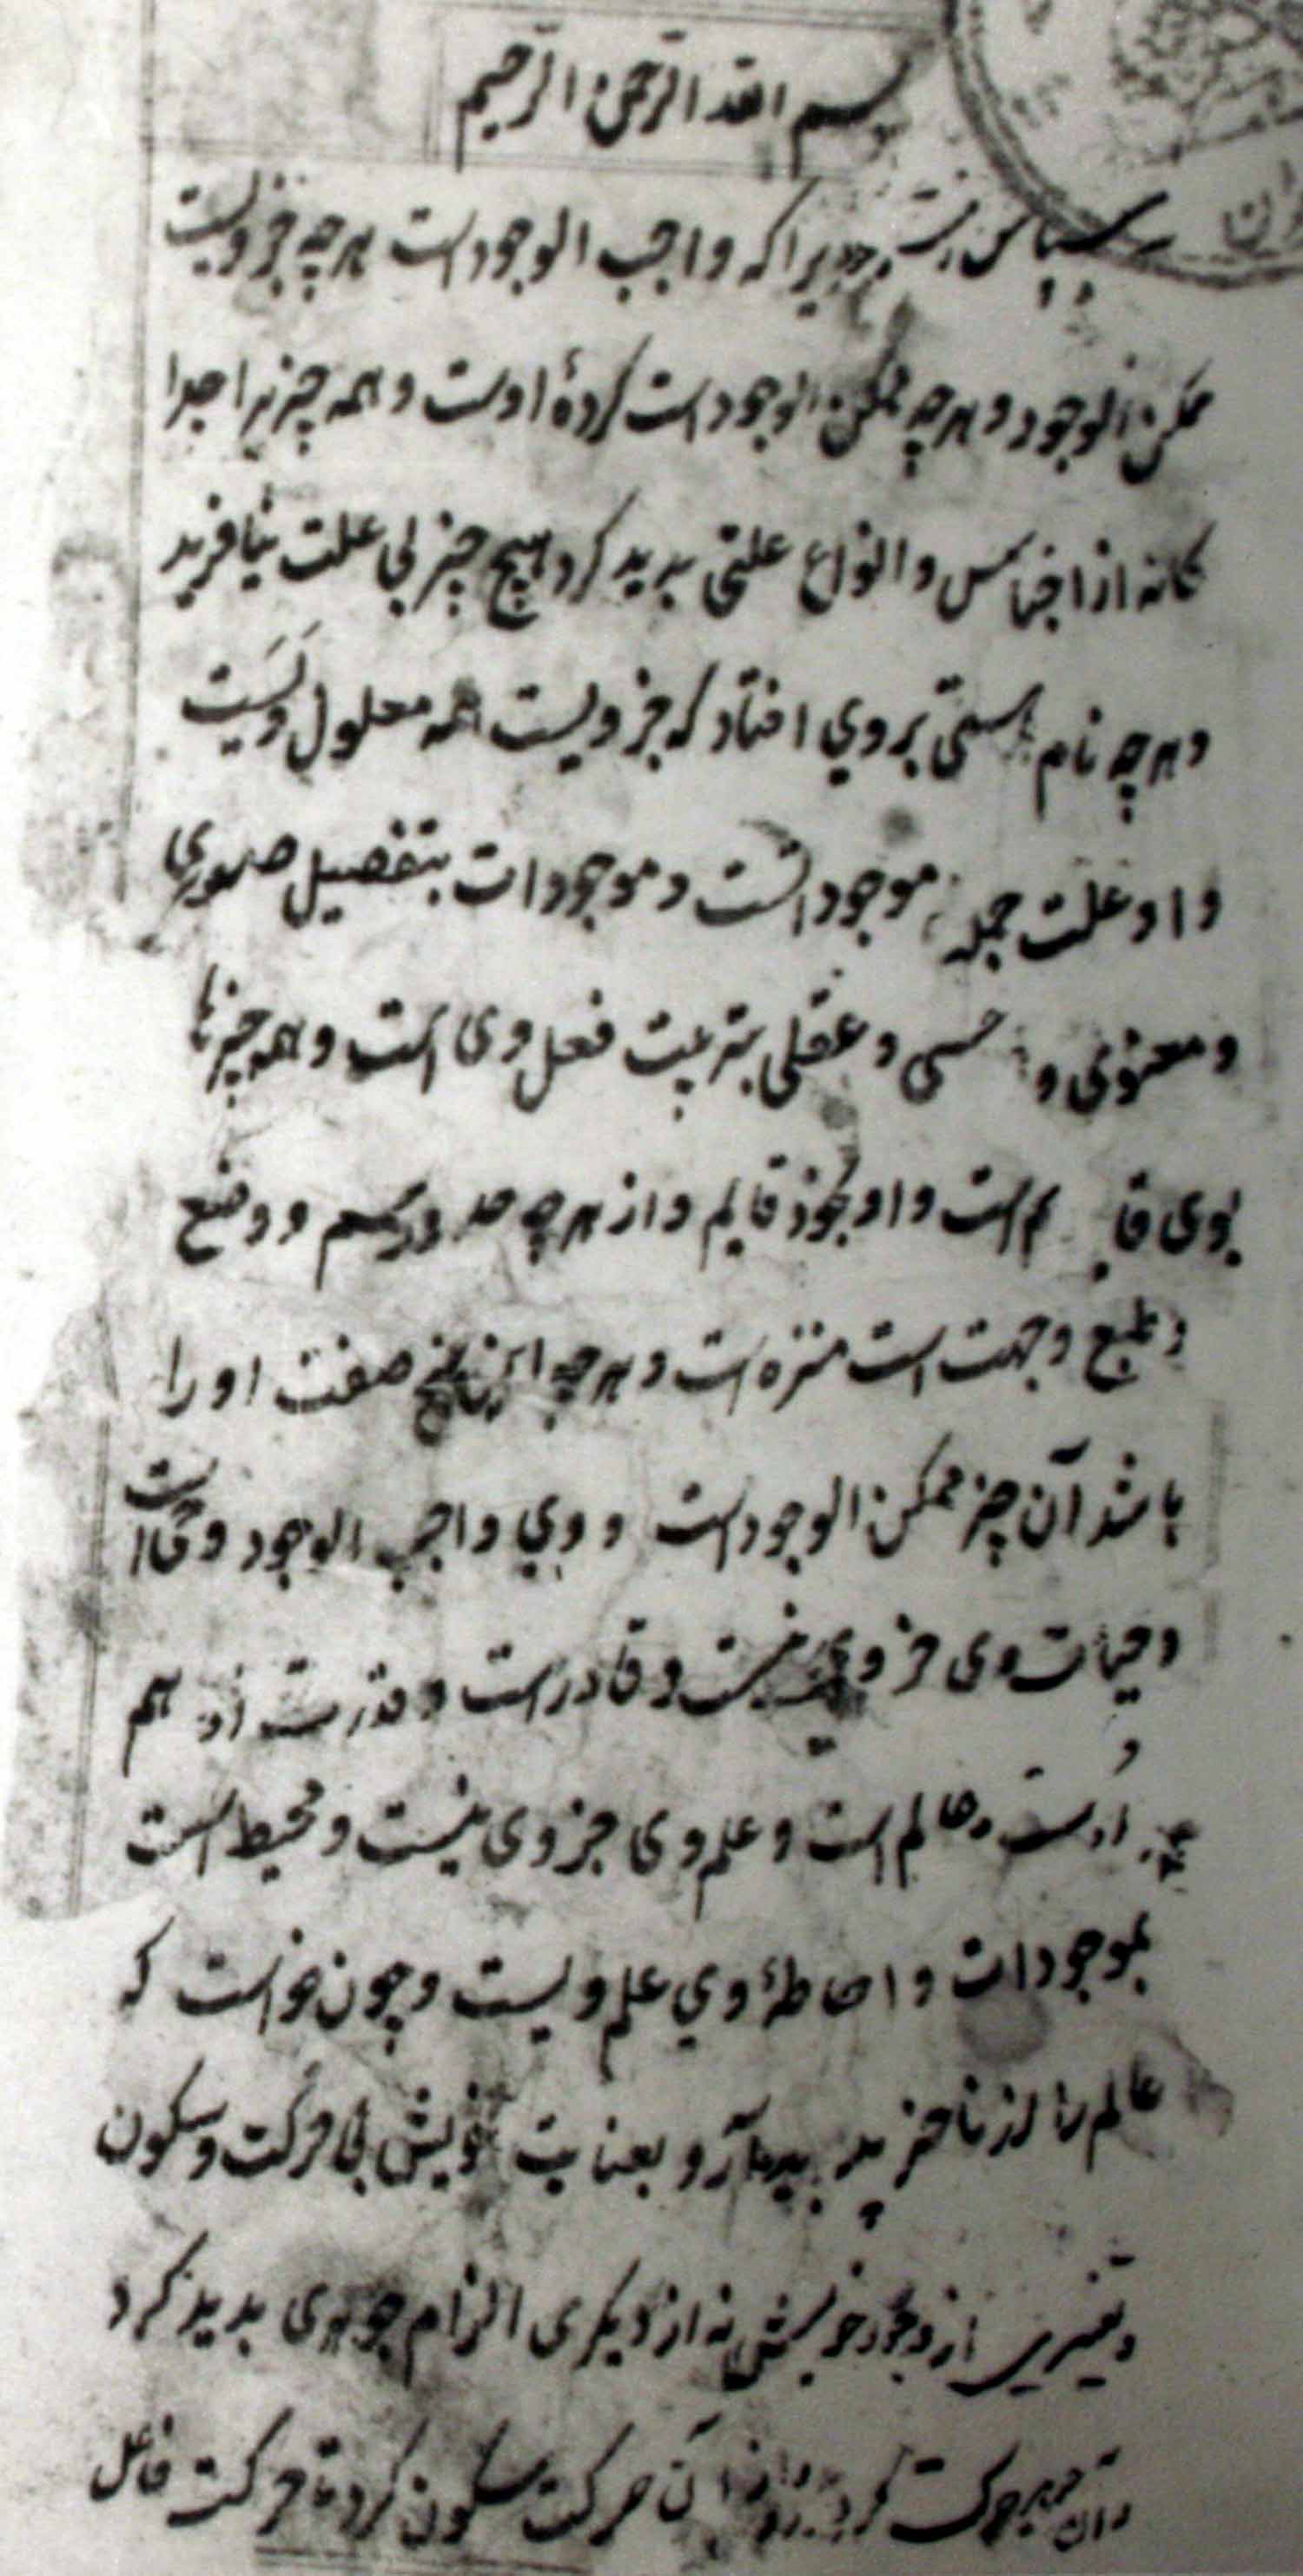 بسم الله الرحمن الرحیم
سپاس خدیرا که واجب الوجودست هر چه جز ویست
ممکن الوجود و هر چه ممکن الوجودست کردهٔ اوست و همه چیز را جدا
کانه از اجناس و انواع علتی بدید کرد هیچ چیز بی علت نیافرید
و هر چه نام هستی بروی افتاد که جز ویست همه معلول ویست
و او علت جمله موجوداتست و موجودات بتفصیل صوری
و معنوی و حسی و عقلی بترتیب فعل وی است و همه چیزها
بوی قایم است و او بخود قایم و از هر چه حد و رسم و وضع
و طبع و جهت است منزه است و هر چه این پنج صفت او را
باشد آن چیز ممکن الوجودست و وی واجب الوجود و حی است
و حیات وی جز وی نیست و قادرست و قدرت او هم
اوست و عالم است و علم وی جز وی نیست و محیط است
بموجودات و احاطهٔ وی علم ویست و چون خواست که
عالم را از ناچیز پدید آرد بعنایت خویش بی حرکت و سکون
و تغییری از وجود خویش نه از دیگری الزام جوهری بدید کرد
و آن جوهر حرکت کرد و از آن حرکت سکون کرد تا حرکت فاعل
ران